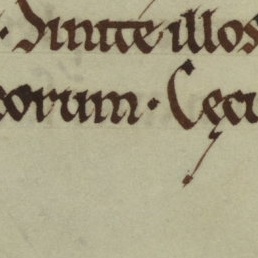 · Sinite illos
eorum · Cęci